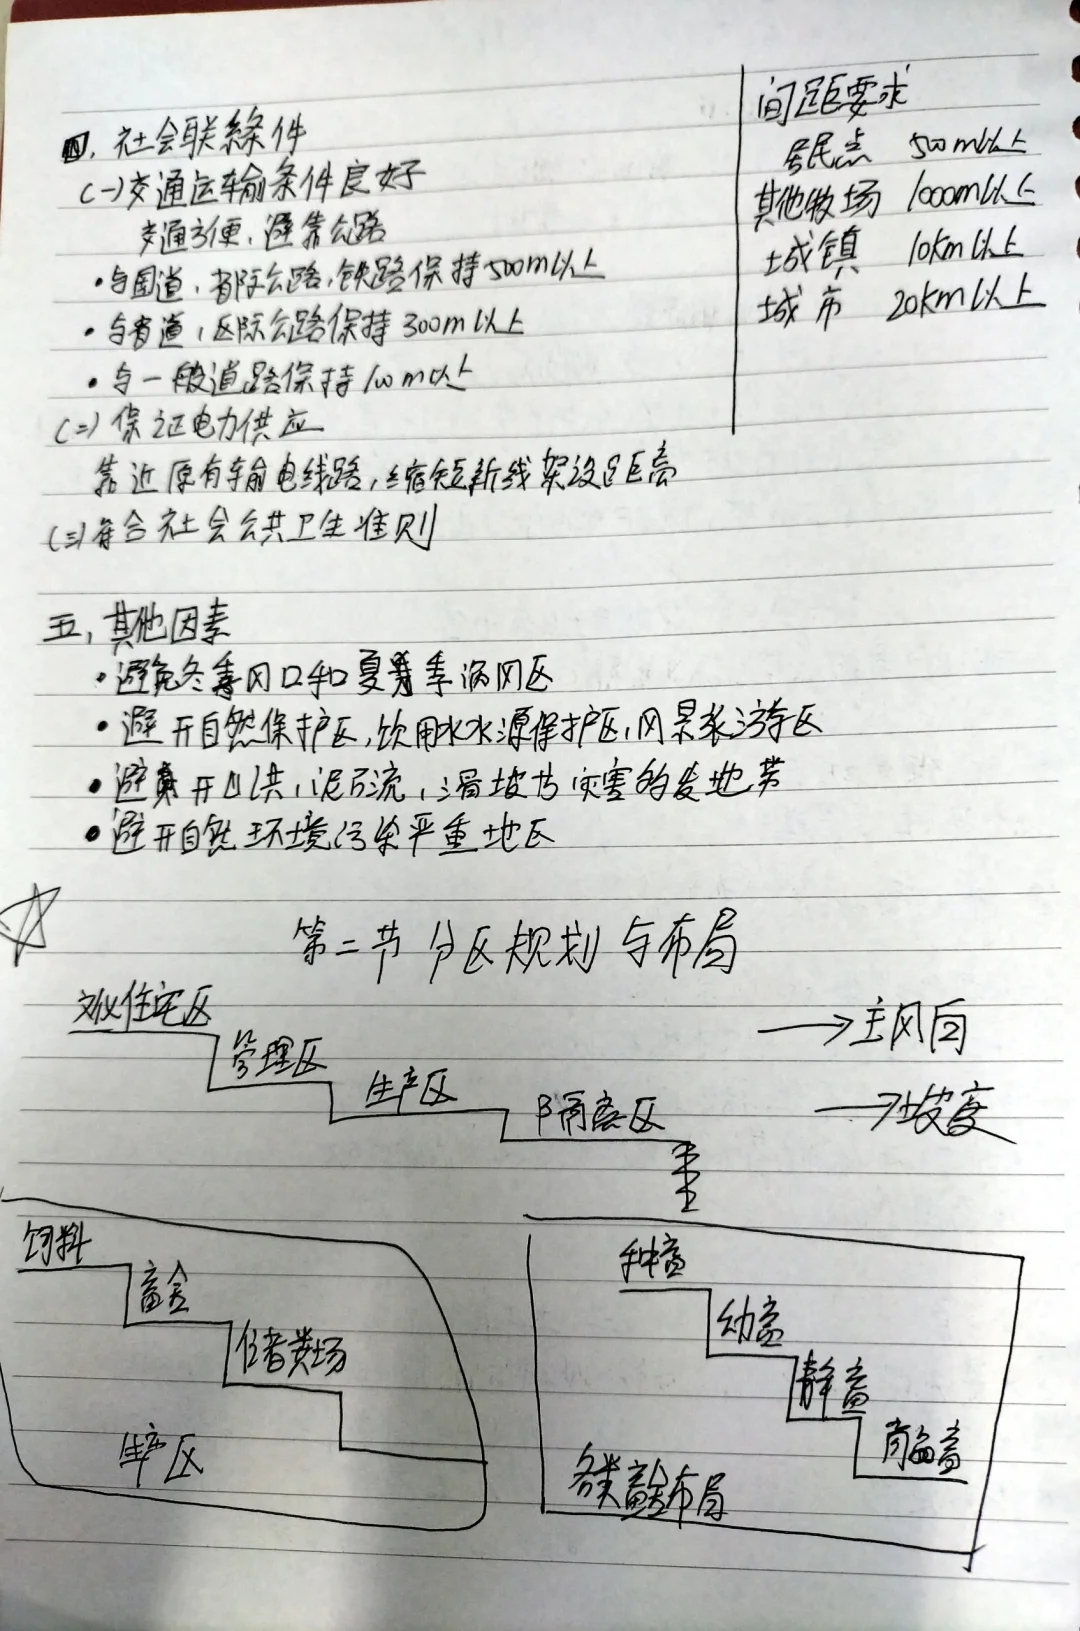 四、社会联系条件
(一)交通运输条件良好
交通方便,避靠公路
·与国道,省际公路,铁路保持500m以上
·与省道,区际公路保持300m以上
·与一般道路保持100m以上
(二)保证电力供应
靠近原有输电线路,缩短新线架设距离
(三)符合社会公共卫生准则
间距要求
居民点 500m以上
其他牧场 1000m以上
城镇 10km以上
城市 20km以上
五、其他因素
·避免冬季风口和夏季涡风区
·避开自然保护区,饮用水水源保护区,风景旅游区
·避开山洪,泥石流,滑坡等灾害的发地带
·避开自然环境污染严重地区
第二节 分区规划与布局
住宅区
管理区
生产区
隔离区
→主风向
→坡度
饲料
畜舍
储粪场
生产区
种畜
幼畜
畜
商品畜
各类畜舍布局